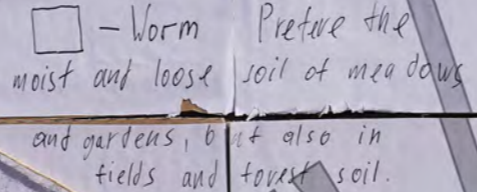 - Worm Prefere the
moist and loose soil of meadows
and gardens, but also in
fields and forest soil.